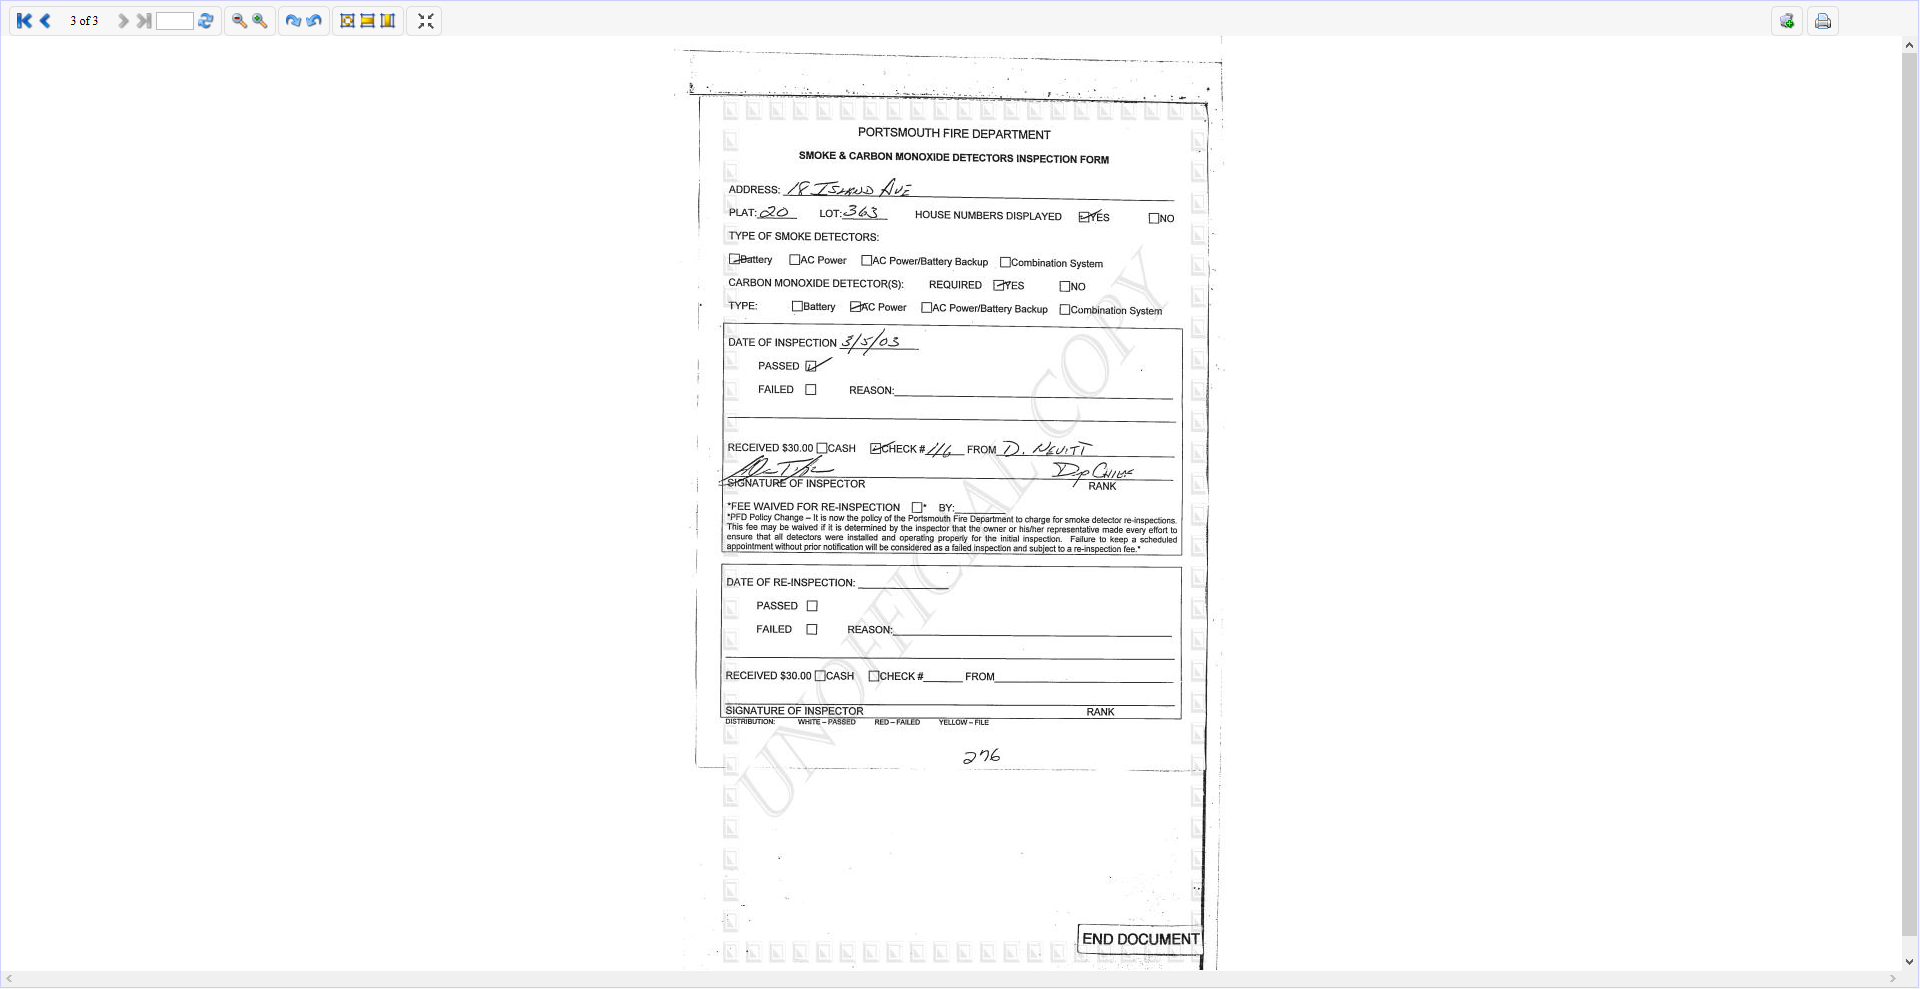 3 of 3
PORTSMOUTH FIRE DEPARTMENT
SMOKE & CARBON MONOXIDE DETECTORS INSPECTION FORM
ADDRESS: 18 ISLAND AVE
PLAT: 20 LOT: 363 HOUSE NUMBERS DISPLAYED YES NO
TYPE OF SMOKE DETECTORS:
Battery AC Power AC Power/Battery Backup Combination System
CARBON MONOXIDE DETECTOR(S): REQUIRED YES NO
TYPE: Battery AC Power AC Power/Battery Backup Combination System
DATE OF INSPECTION 3/5/03
PASSED
FAILED REASON:
RECEIVED $30.00 CASH CHECK # 116 FROM D. NEVITT
Dep CHIEF
SIGNATURE OF INSPECTOR RANK
*FEE WAIVED FOR RE-INSPECTION * BY:
*PFD Policy Change – It is now the policy of the Portsmouth Fire Department to charge for smoke detector re-inspections.
This fee may be waived if it is determined by the inspector that the owner or his/her representative made every effort to
ensure that all detectors were installed and operating properly for the initial inspection. Failure to keep a scheduled
appointment without prior notification will be considered as a failed inspection and subject to a re-inspection fee.*
DATE OF RE-INSPECTION:
PASSED
FAILED REASON:
RECEIVED $30.00 CASH CHECK # FROM
SIGNATURE OF INSPECTOR RANK
DISTRIBUTION: WHITE – PASSED RED – FAILED YELLOW – FILE
276
UNOFFICIAL COPY
END DOCUMENT